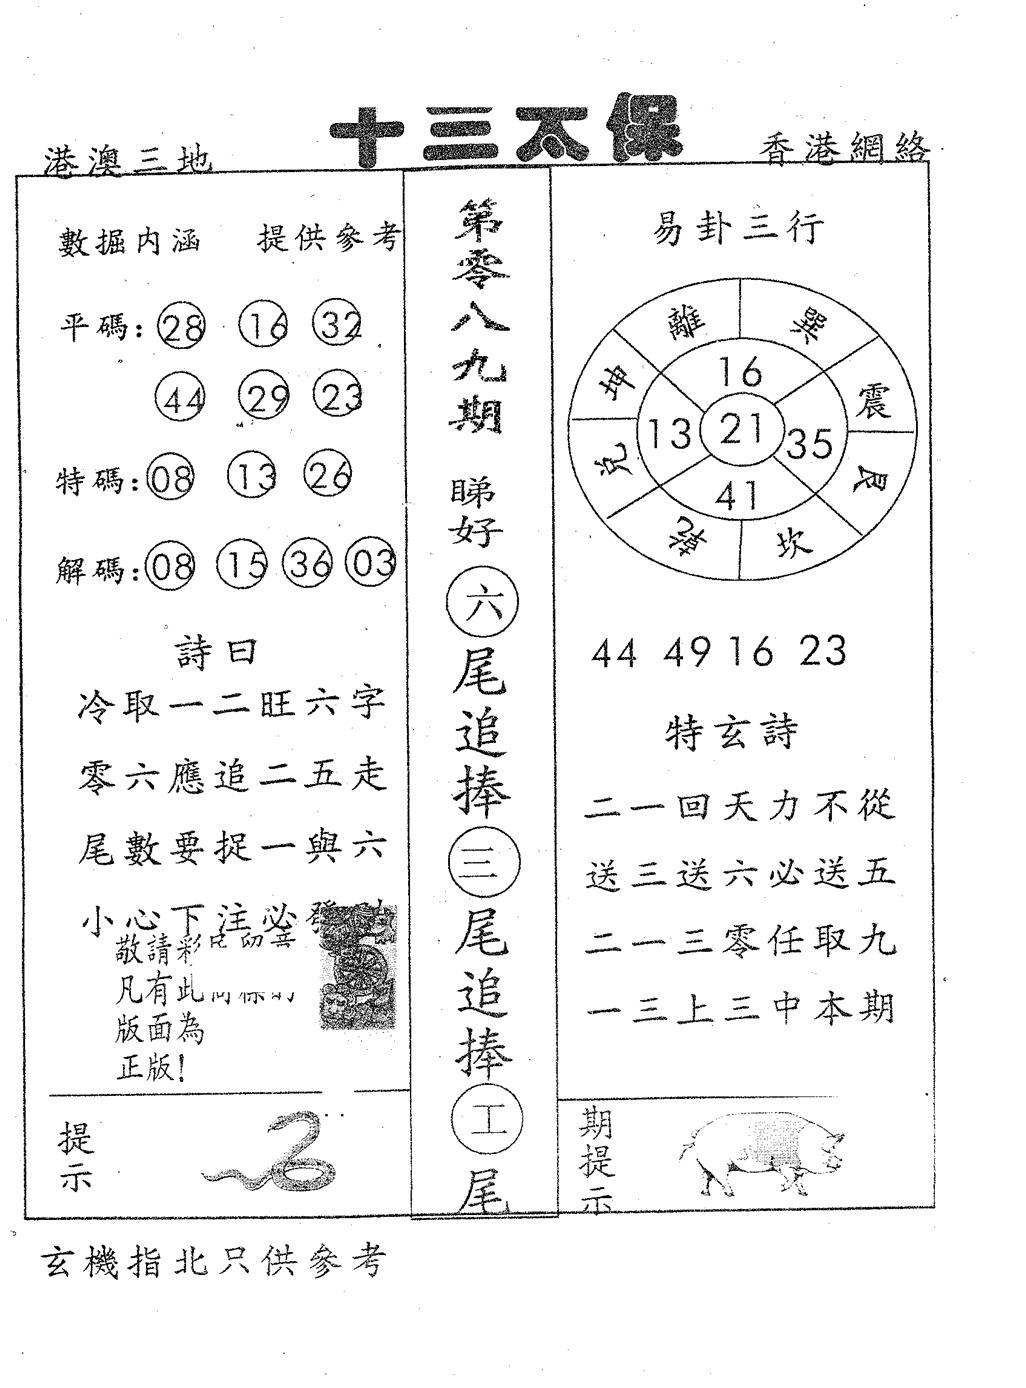 十三太保
港澳三地
香港網絡
數掘内涵 提供參考
平碼: 28 16 32
44 29 23
特碼: 08 13 26
解碼: 08 15 36 03
詩曰
冷取一二旺六字
零六應追二五走
尾數要捉一與六
小心下注必發
敬請彩民留意
凡有此商標的
版面為
正版!
提示
第零八九期
睇好
六
尾追捧
三
尾追捧
工
尾
易卦三行
離 巽
坤 震
兌 艮
乾 坎
16
13 21 35
41
44 49 16 23
特玄詩
二一回天力不從
送三送六必送五
二一三零任取九
一三上三中本期
期提示
玄機指北只供參考